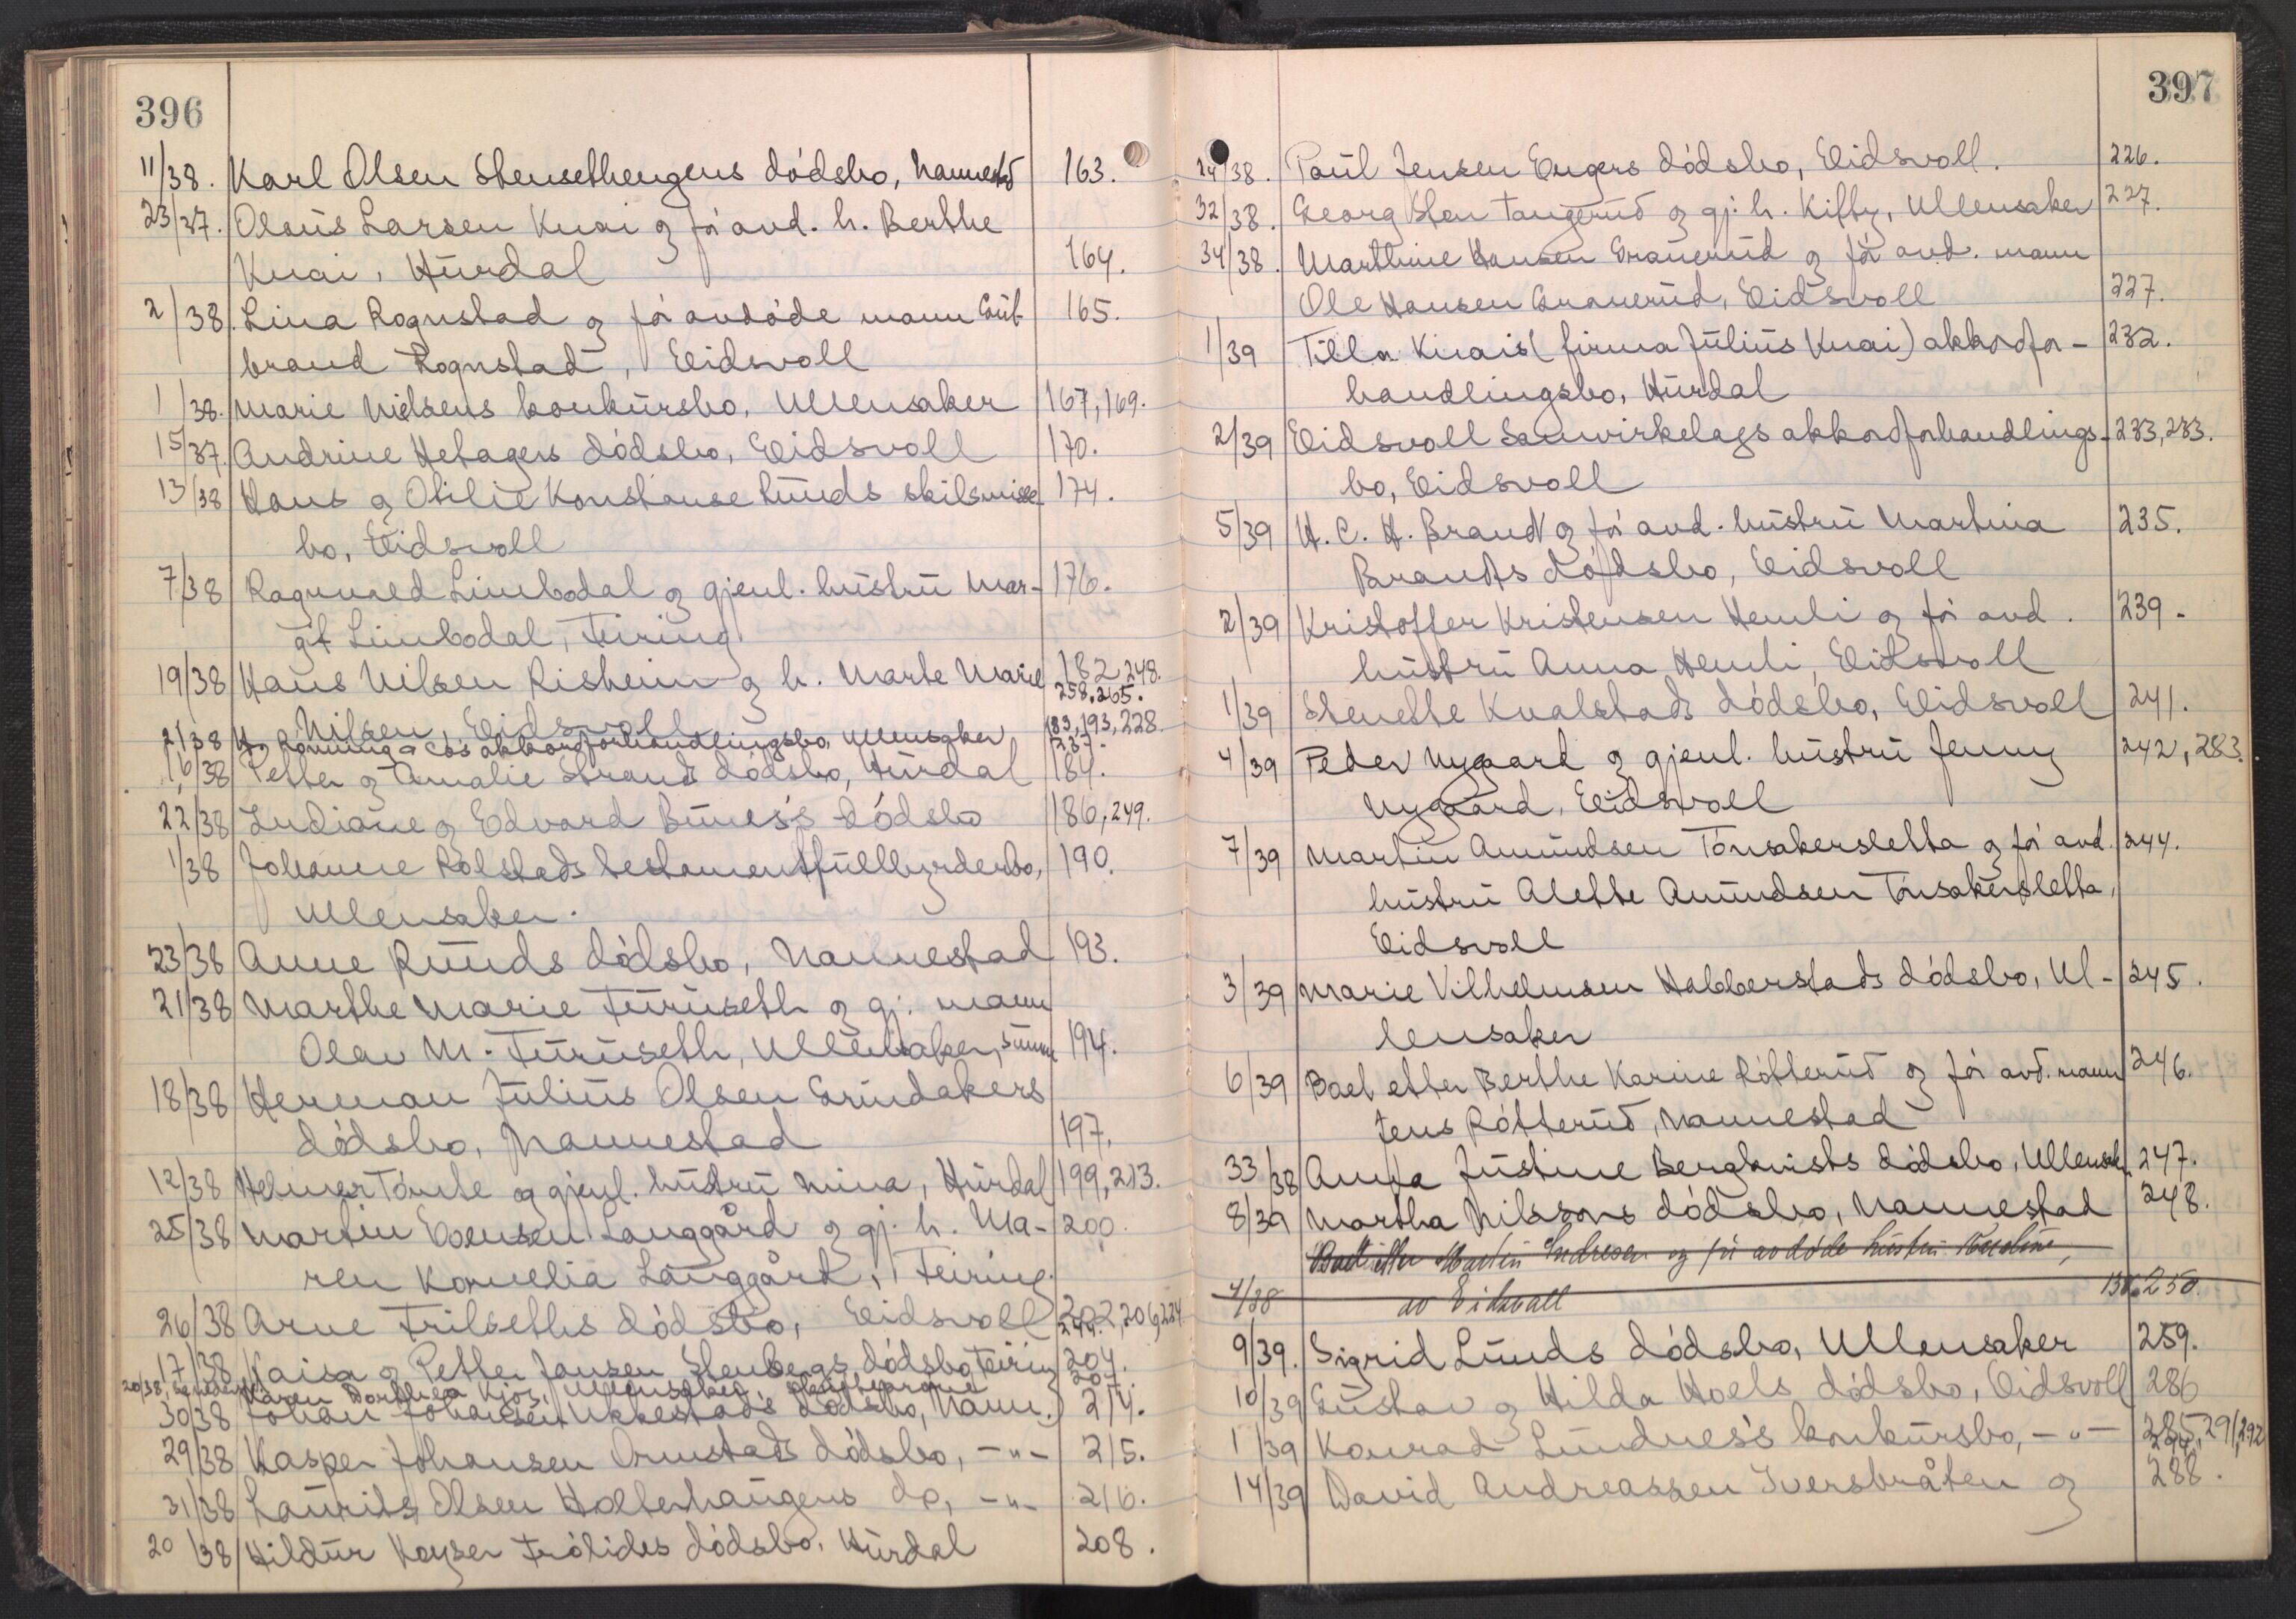 396
11/38. Karl Olsen Stensethengens dødsbo, Nannestad 163.
23/37. Olaus Larsen Knai og før avd. h. Berthe
Knai, Hurdal 164.
2/38. Lina Rognstad og før avdøde mann Gul- 165.
brand Rognstad, Eidsvoll
1/38. Marie Nielsens konkursbo, Ullensaker 167, 169.
15/37. Andrine Hetagers dødsbo, Eidsvoll 170.
13/38 Hans og Otilie Konstanse Lunds skilsmisse- 174.
bo, Eidsvoll
7/38 Ragnvald Limbodal og gjenl. hustru Mar- 176.
git Limbodal, Feiring
19/38 Hans Nilsen Risheim og h. Marte Marie 182, 248.
258, 265.
Nilsen, Eidsvoll
2/38 Rønning & Co's akkordforhandlingsbo, Ullensaker 183, 193, 228.
237.
16/38 Petter og Amalie Strands dødsbo, Hurdal 184.
22/38 Indiane og Edvard Bunes's dødsbo 186, 249.
1/38 Johanne Rolstads testamentfullbyrderbo, 190.
Ullensaker.
23/38 Anne Ruuds dødsbo, Nannestad 193.
21/38 Marthe Marie Furuseth og gj. mann
Olav M. Furuseth, Ullensaker, 194.
18/38 Herman Julius Olsen Grundakers
dødsbo, Nannestad 197.
12/38 Helmer Tømte og gjenl. hustru Mina, Hurdal 199, 213.
25/38 Martin Evensen Langgård og gj. h. Ma- 200.
ren Kornelia Langgård, Feiring.
26/38 Arne Frilseths dødsbo, Eidsvoll 202, 206, 224
244.
17/38 Kaisa og Petter Jansen Stenbergs dødsbo Feiring 204.
20/38, Karen Dorthea Kjøs, Ullensaker 207.
30/38 Johan Johansen Ukkestads dødsbo, Nann. 214.
29/38 Kasper Johansen Ornstads dødsbo, -"- 215.
31/38 Laurits Olsen Holterhaugens do, -"- 216.
20/38 Hildur Kayser Frólides dødsbo, Hurdal 208.
397
24/38. Paul Jensen Engers dødsbo, Eidsvoll. 226.
32/38. Georg Sten Tangerud og gj. h. Kitty, Ullensaker 227.
34/38. Marthine Hansen Granerud og før avd. mann
Ole Hansen Granerud, Eidsvoll 227.
1/39 Tilla Knais (firma Julius Knai) akkordfor- 232.
handlingsbo, Hurdal
2/39 Eidsvoll Samvirkelags akkordforhandlings- 233, 283.
bo, Eidsvoll
5/39 H. C. H. Brandt og før avd. hustru Martina 235.
Brandts dødsbo, Eidsvoll
2/39 Kristoffer Kristensen Hemli og før avd. 239.
hustru Anna Hemli, Eidsvoll
1/39 Stenette Kvalstads dødsbo, Eidsvoll 241.
4/39 Peder Nygaard og gjenl. hustru Jenny 242, 283.
Nygaard, Eidsvoll
7/39 Martin Amundsen Tønsakersletta og før avd. 244.
hustru Alette Amundsen Tønsakersletta,
Eidsvoll
3/39 Marie Vilhelmsen Habberstads dødsbo, Ul- 245.
lensaker
6/39 Boet etter Berthe Karine Røtterud og før avd. mann 246.
Jens Røtterud, Nannestad
33/38 Anna Justine Bergkvists dødsbo, Ullensak. 247.
8/39 Martha Nilssons dødsbo, Nannestad 248.
Boet etter Martin Andresen og før avdøde hustru Karoline,
4/38 av Eidsvoll 250.
9/39. Sigrid Lunds dødsbo, Ullensaker 259.
10/39 Gustav og Hilda Hoels dødsbo, Eidsvoll 286
1/39 Konrad Lundnes's konkursbo, -"- 285, 291, 292
294.
14/39 David Andreassen Iversbråten og 288.